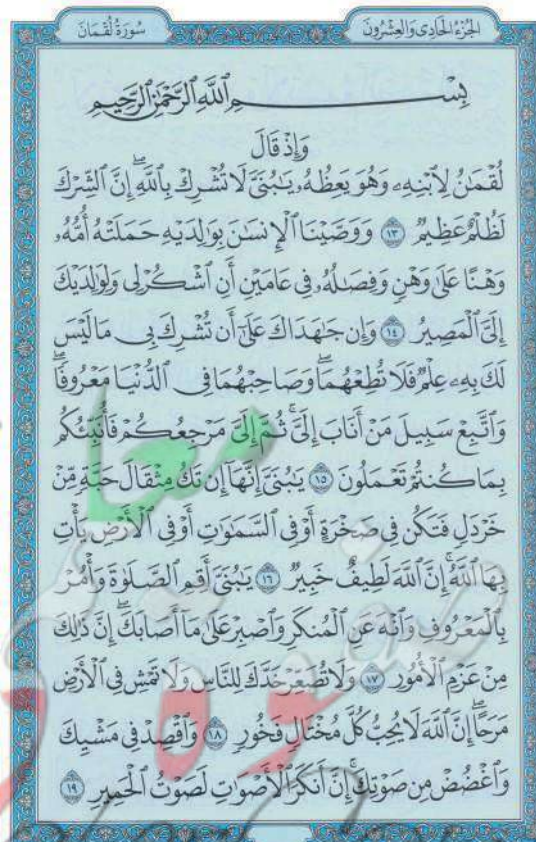 الجزء الحادي والعشرون
سورة لقمان
بِسْمِ اللَّهِ الرَّحْمَٰنِ الرَّحِيمِ
وَإِذْ قَالَ
لُقْمَٰنُ لِٱبْنِهِۦ وَهُوَ يَعِظُهُۥ يَٰبُنَيَّ لَا تُشْرِكْ بِٱللَّهِۖ إِنَّ ٱلشِّرْكَ
لَظُلْمٌ عَظِيمٌ ١٣ وَوَصَّيْنَا ٱلْإِنسَٰنَ بِوَٰلِدَيْهِ حَمَلَتْهُ أُمُّهُۥ
وَهْنًا عَلَىٰ وَهْنٍ وَفِصَٰلُهُۥ فِي عَامَيْنِ أَنِ ٱشْكُرْ لِي وَلِوَٰلِدَيْكَ
إِلَيَّ ٱلْمَصِيرُ ١٤ وَإِن جَٰهَدَاكَ عَلَىٰٓ أَن تُشْرِكَ بِي مَا لَيْسَ
لَكَ بِهِۦ عِلْمٌ فَلَا تُطِعْهُمَاۖ وَصَاحِبْهُمَا فِي ٱلدُّنْيَا مَعْرُوفًاۖ
وَٱتَّبِعْ سَبِيلَ مَنْ أَنَابَ إِلَيَّۚ ثُمَّ إِلَيَّ مَرْجِعُكُمْ فَأُنَبِّئُكُم
بِمَا كُنتُمْ تَعْمَلُونَ ١٥ يَٰبُنَيَّ إِنَّهَآ إِن تَكُ مِثْقَالَ حَبَّةٍ مِّنْ
خَرْدَلٍ فَتَكُن فِي صَخْرَةٍ أَوْ فِي ٱلسَّمَٰوَٰتِ أَوْ فِي ٱلْأَرْضِ يَأْتِ
بِهَا ٱللَّهُۚ إِنَّ ٱللَّهَ لَطِيفٌ خَبِيرٌ ١٦ يَٰبُنَيَّ أَقِمِ ٱلصَّلَوٰةَ وَأْمُرْ
بِٱلْمَعْرُوفِ وَٱنْهَ عَنِ ٱلْمُنكَرِ وَٱصْبِرْ عَلَىٰ مَآ أَصَابَكَۖ إِنَّ ذَٰلِكَ
مِنْ عَزْمِ ٱلْأُمُورِ ١٧ وَلَا تُصَعِّرْ خَدَّكَ لِلنَّاسِ وَلَا تَمْشِ فِي ٱلْأَرْضِ
مَرَحًاۖ إِنَّ ٱللَّهَ لَا يُحِبُّ كُلَّ مُخْتَالٍ فَخُورٍ ١٨ وَٱقْصِدْ فِي مَشْيِكَ
وَٱغْضُضْ مِن صَوْتِكَۚ إِنَّ أَنكَرَ ٱلْأَصْوَٰتِ لَصَوْتُ ٱلْحَمِيرِ ١٩
معا